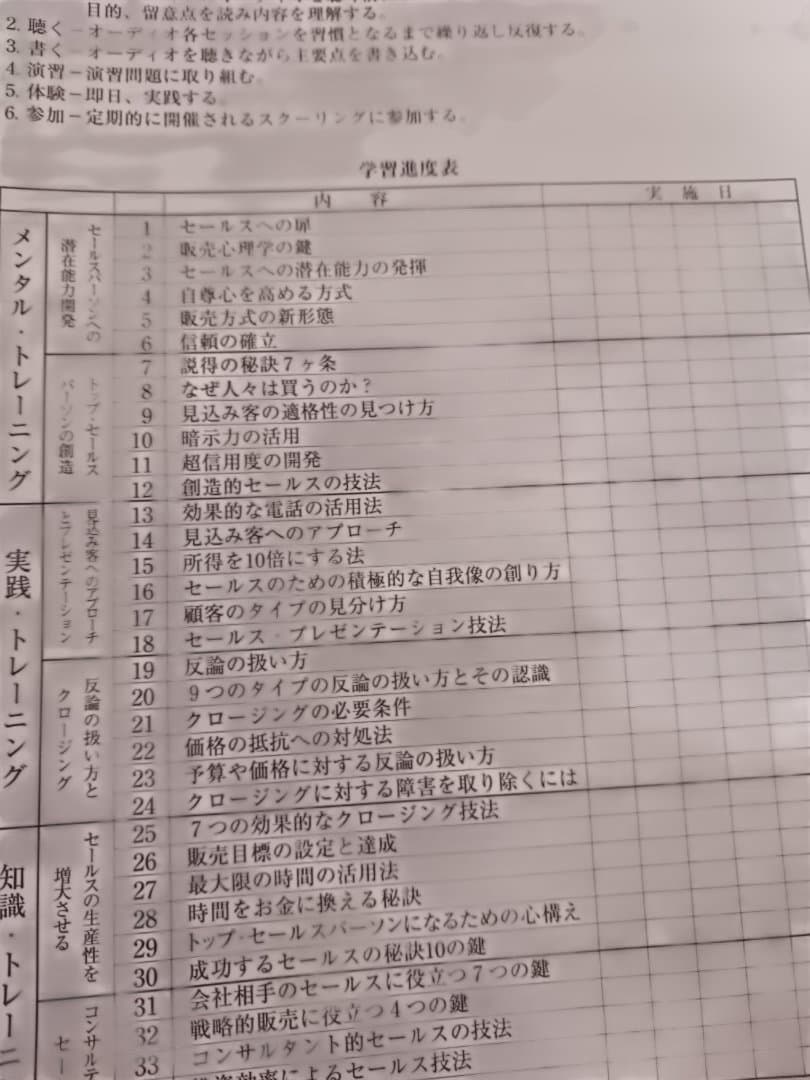 目的、留意点を読み内容を理解する。
2. 聴く－オーディオ各セッションを習慣となるまで繰り返し反復する。
3. 書く－オーディオを聴きながら主要点を書き込む。
4. 演習－演習問題に取り組む。
5. 体験－即日、実践する。
6. 参加－定期的に開催されるスクーリングに参加する。
学習進度表
内 容 実 施 日
メンタル・トレーニング
セールスパーソンへの
潜在能力開発
1 セールスへの扉
2 販売心理学の鍵
3 セールスへの潜在能力の発揮
4 自尊心を高める方式
5 販売方式の新形態
6 信頼の確立
トップ・セールス
パーソンの創造
7 説得の秘訣７ヶ条
8 なぜ人々は買うのか？
9 見込み客の適格性の見つけ方
10 暗示力の活用
11 超信用度の開発
12 創造的セールスの技法
実践・トレーニング
見込み客へのアプローチ
とプレゼンテーション
13 効果的な電話の活用法
14 見込み客へのアプローチ
15 所得を10倍にする法
16 セールスのための積極的な自我像の創り方
17 顧客のタイプの見分け方
18 セールス・プレゼンテーション技法
反論の扱い方と
クロージング
19 反論の扱い方
20 ９つのタイプの反論の扱い方とその認識
21 クロージングの必要条件
22 価格の抵抗への対処法
23 予算や価格に対する反論の扱い方
24 クロージングに対する障害を取り除くには
知識・トレーニ
セールスの生産性を
増大させる
25 ７つの効果的なクロージング技法
26 販売目標の設定と達成
27 最大限の時間の活用法
28 時間をお金に換える秘訣
29 トップ・セールスパーソンになるための心構え
30 成功するセールスの秘訣10の鍵
コンサルテ
セー
31 会社相手のセールスに役立つ７つの鍵
32 戦略的販売に役立つ４つの鍵
33 コンサルタント的セールスの技法
効率によるセールス技法